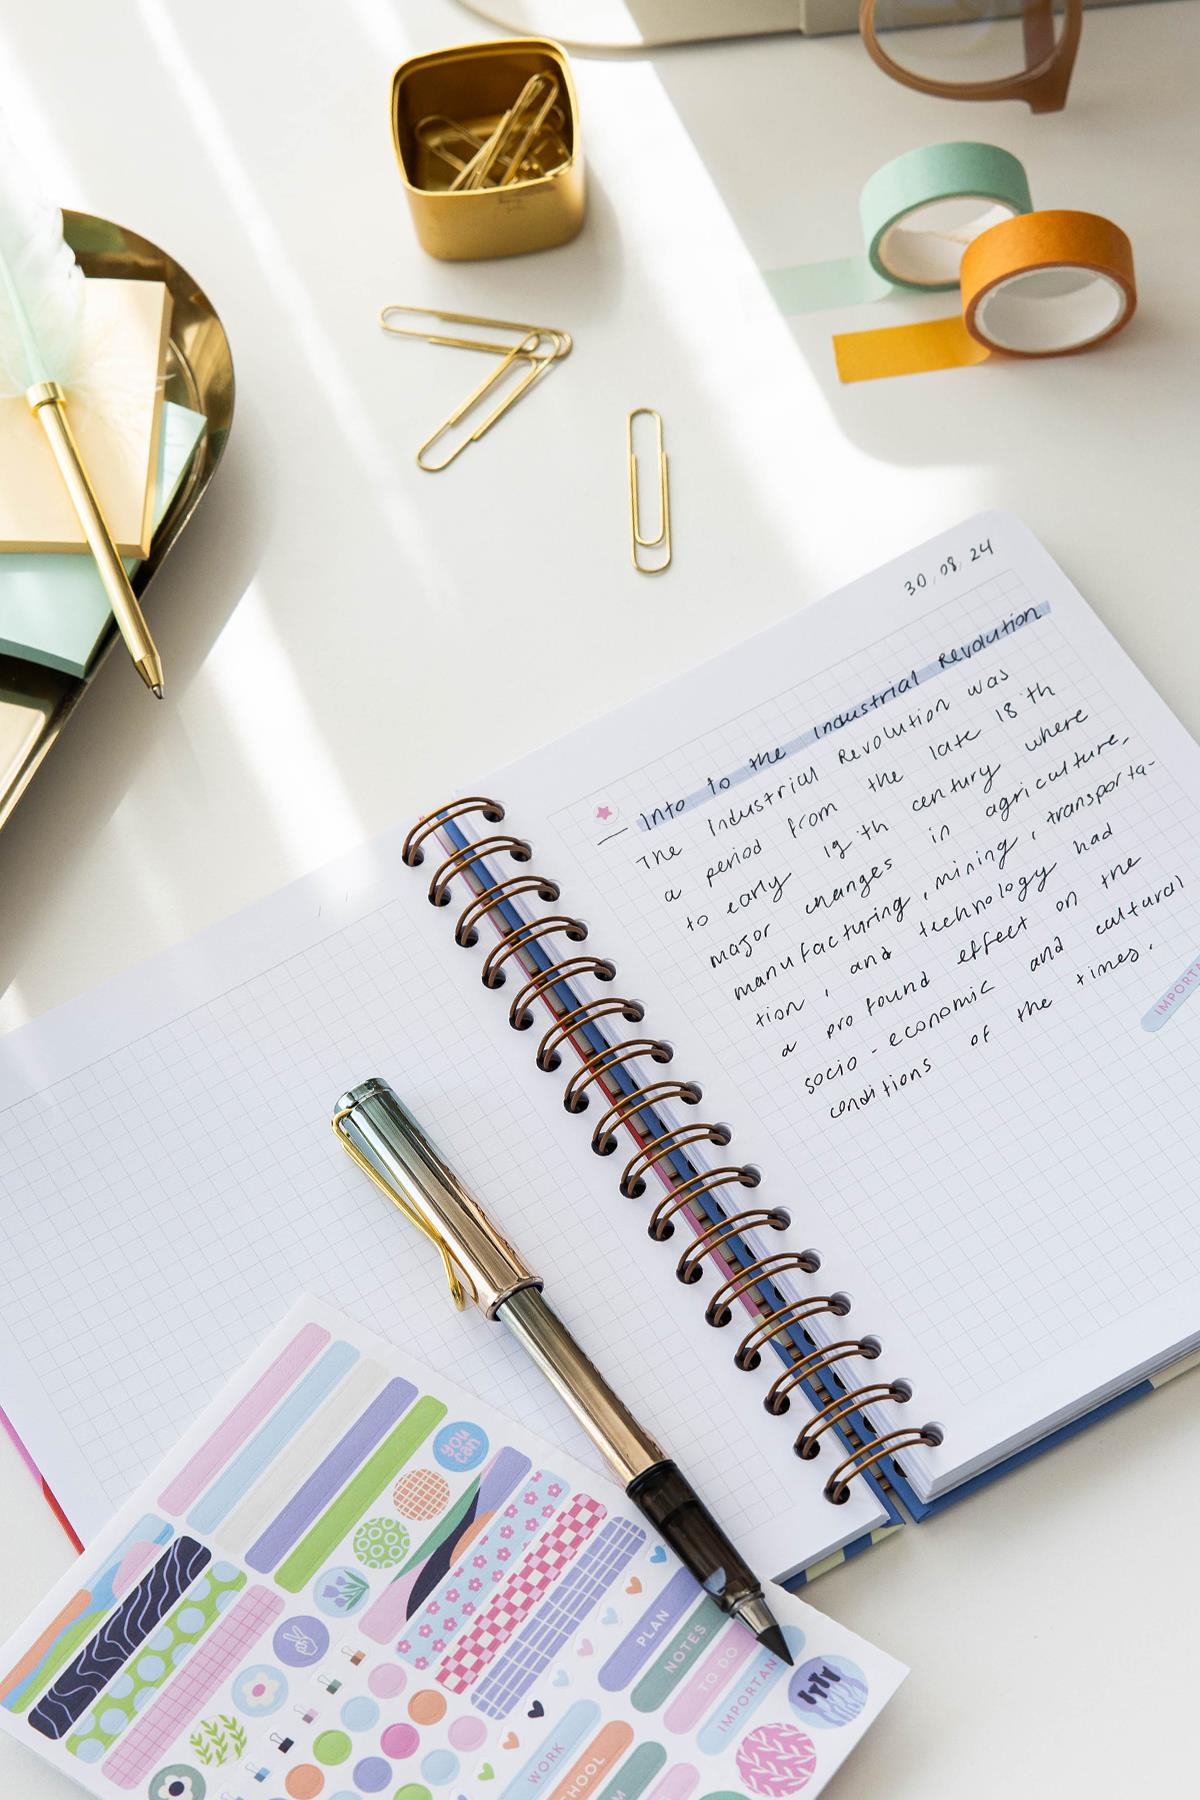 30.08.24
Into to the Industrial Revolution
The Industrial Revolution was
a period from the late 18th
to early 19th century where
major changes in agriculture,
manufacturing, mining, transporta-
tion, and technology had
a profound effect on the
socio-economic and cultural
conditions of the times.
IMPORTA
you
can
PLAN
NOTES
TO DO
IMPORTAN
WORK
CHOOL